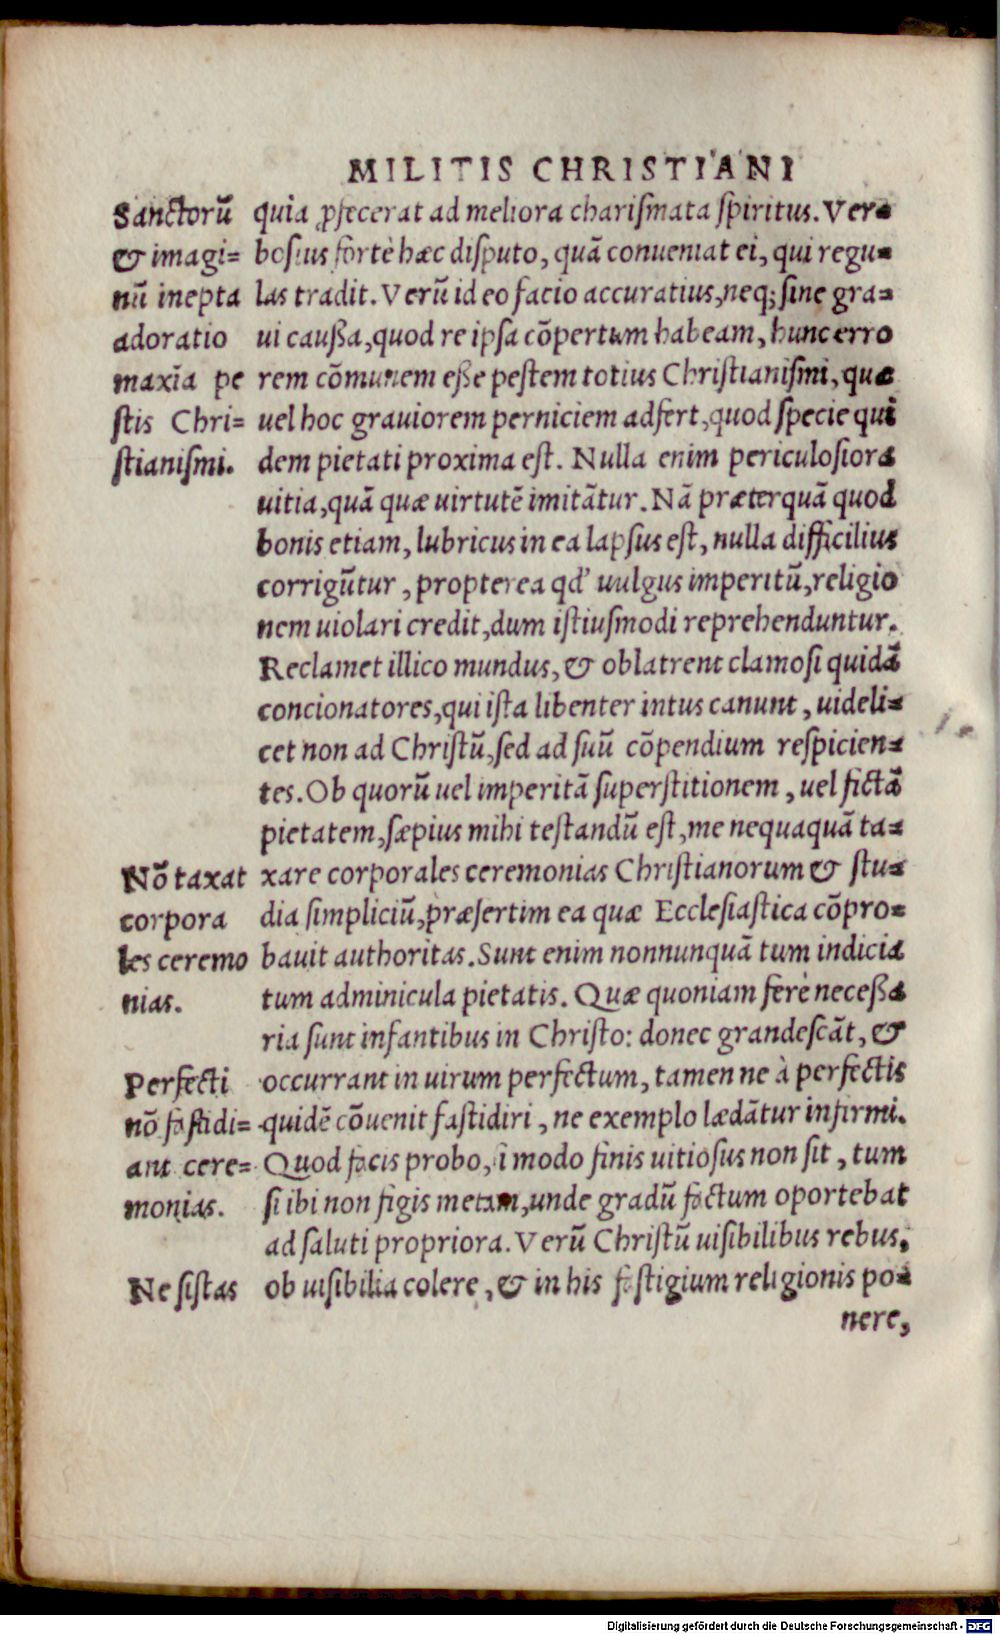 MILITIS CHRISTIANI
Sanctorũ
& imagi=
nũ inepta
adoratio
maxĩa pe
ſtis Chri=
ſtianiſmi.
Nõ taxat
corpora
les ceremo
nias.
Perfecti
nõ faſtidi=
ant cere=
monias.
Ne ſiſtas
quia ꝓfecerat ad meliora chariſmata ſpiritus. Ver=
boſius fortè hæc diſputo, quã conueniat ei, qui regu=
las tradit. Verũ id eo facio accuratius, neq; ſine gra=
ui cauſſa, quod re ipſa cõpertum habeam, hunc erro
rem cõmunem eſſe peſtem totius Chriſtianiſmi, quæ
uel hoc grauiorem perniciem adfert, quod ſpecie qui
dem pietati proxima eſt. Nulla enim periculoſiora
uitia, quã quæ uirtutẽ imitãtur. Nã præterquã quod
bonis etiam, lubricus in ea lapſus eſt, nulla difficilius
corrigũtur, propterea qd' uulgus imperitũ, religio
nem uiolari credit, dum iſtiuſmodi reprehenduntur.
Reclamet illico mundus, & oblatrent clamoſi quidã
concionatores, qui iſta libenter intus canunt, uideli=
cet non ad Chriſtũ, ſed ad ſuũ cõpendium reſpicien=
tes. Ob quorũ uel imperitã ſuperſtitionem, uel fictã
pietatem, ſæpius mihi teſtandũ eſt, me nequaquã ta=
xare corporales ceremonias Chriſtianorum & ſtu=
dia ſimpliciũ, præſertim ea quæ Eccleſiaſtica cõpro=
bauit authoritas. Sunt enim nonnunquã tum indicia
tum adminicula pietatis. Quæ quoniam ferè neceſſa
ria ſunt infantibus in Chriſto: donec grandeſcãt, &
occurrant in uirum perfectum, tamen ne à perfectis
quidẽ cõuenit faſtidiri, ne exemplo lædãtur infirmi.
Quod facis probo, ſi modo finis uitioſus non ſit, tum
ſi ibi non figis metam, unde gradũ factum oportebat
ad ſaluti propriora. Verũ Chriſtũ uiſibilibus rebus,
ob uiſibilia colere, & in his faſtigium religionis po=
nere,
Digitalisierung gefördert durch die Deutsche Forschungsgemeinschaft - DFG